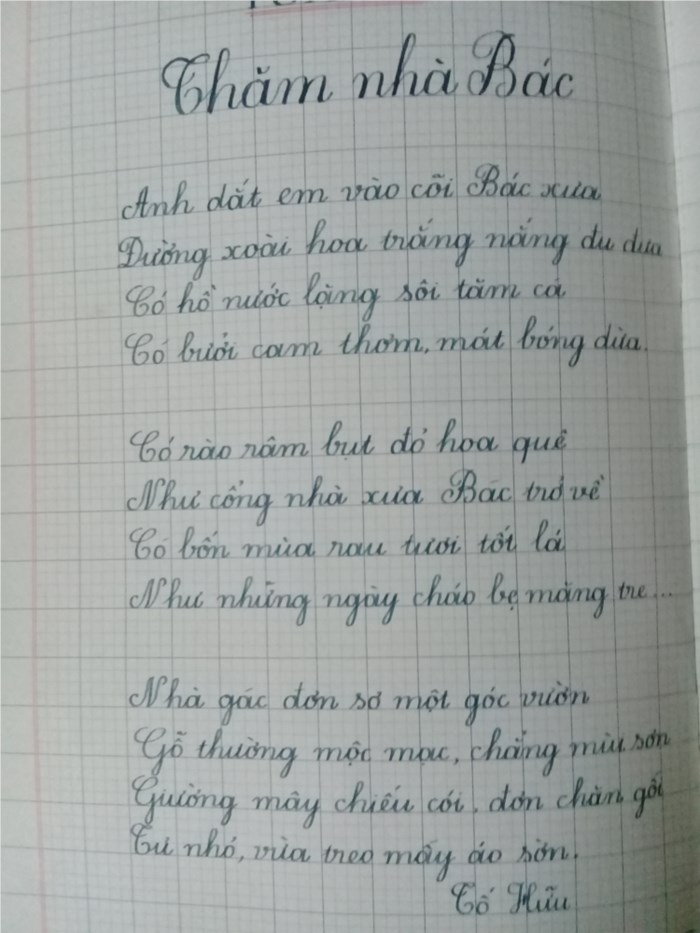 Thăm nhà Bác
Anh dắt em vào cõi Bác xưa
Đường xoài hoa trắng nắng đu đưa
Có hồ nước lặng sôi tăm cá
Có bưởi cam thơm, mát bóng dừa.
Có rào râm bụt đỏ hoa quê
Như cổng nhà xưa Bác trở về
Có bốn mùa rau tươi tốt lá
Như những ngày cháo bẹ măng tre...
Nhà gác đơn sơ một góc vườn
Gỗ thường mộc mạc, chẳng mùi sơn
Giường mây chiếu cói, đơn chăn gối
Tủ nhỏ, vừa treo mấy áo sờn.
Tố Hữu